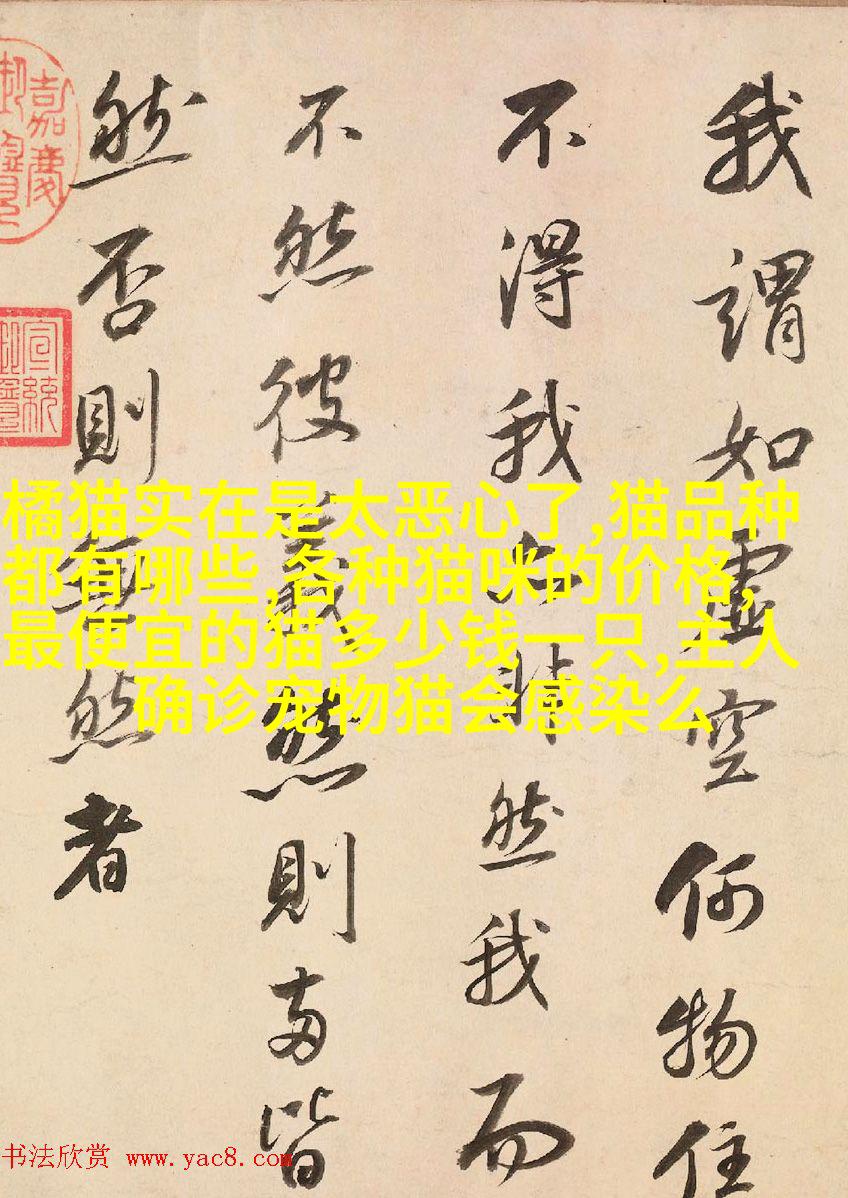 我謂如虛空何物住
不得我以非然我而
不然彼義然則兩皆
然否則無然者
嘉慶
宣統
橘猫实在是太恶心了,猫品种
都有哪些,各种猫咪的价格,
最便宜的猫多少钱一只,主人
确诊宠物猫会感染么
书法欣赏 www.yac8.com